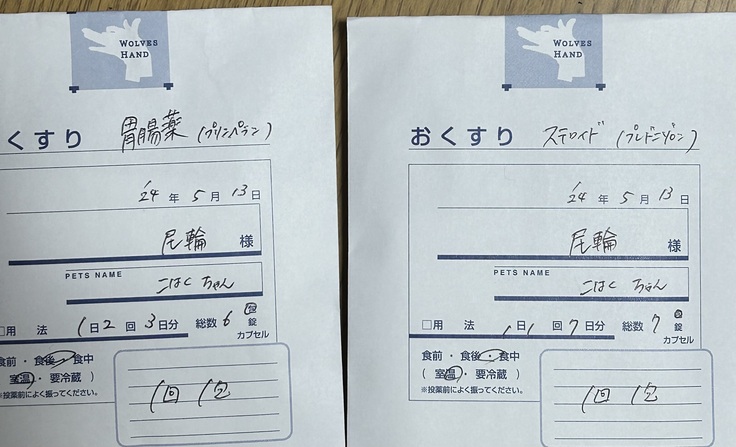 WOLVES
HAND
くすり 胃腸薬 (プリンペラン)
'24 年 5 月 13 日
尾輪 様
PETS NAME
こはく ちゃん
□用 法 1日2 回 3日分 総数 6 包
錠
カプセル
食前・食後・食中
室温・要冷蔵 )
※投薬前によく振ってください。
1回 1包
WOLVES
HAND
おくすり ステロイド (プレドニゾロン)
'24 年 5 月 13 日
尾輪 様
PETS NAME
こはく ちゃん
□用 法 1日1 回 7日分 総数 7 包
錠
カプセル
食前・食後・食中
( 室温・要冷蔵 )
※投薬前によく振ってください。
1回 1包